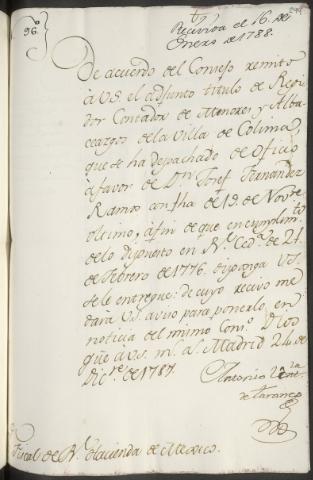 96º
Recivida el 16. de
Enero de 1788.
De acuerdo del Consejo remito
à V.S. el adjunto titulo de Regi
dor Contador de Menores y Alba
ceazgos de la Villa de Colima,
que se ha despachado de Oficio
à favor de Dn. Josef Fernandez
Ramos con fha de 19 de Novre
ultimo; à fin de que en cumplimto
de lo dispuesto en Rl. Cedª. de 21.
de Febrero de 1776. disponga V.S.
se le entregue: de cuyo recivo me
dará V.S. aviso para ponerlo en
noticia del mismo Conso. Dios
gue à V.S. ms. as. Madrid 24 de
Dicre. de 1787.
Antonio Ventª
de Taranco
Fiscal de Rl. Hacienda de Mexico.